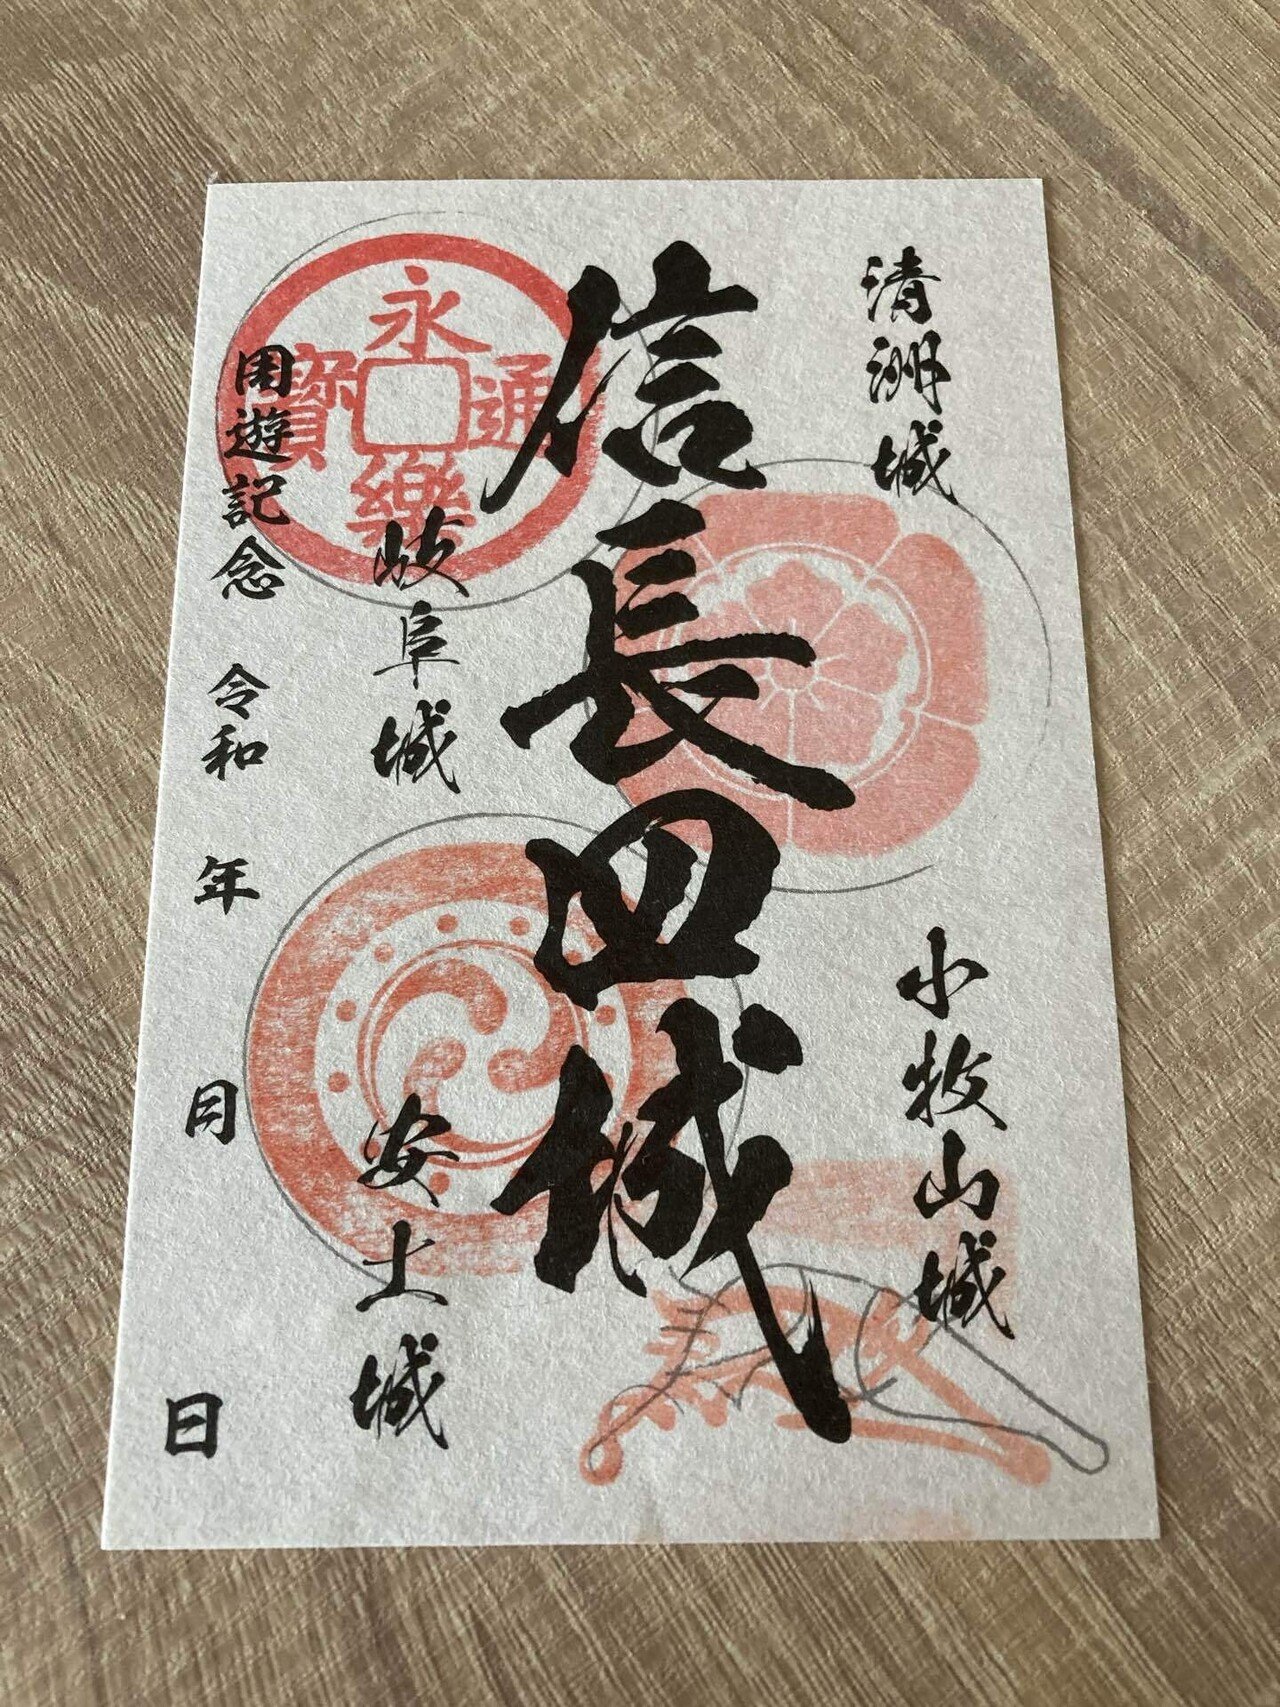 清洲城
小牧山城
信長四城
岐阜城
安土城
永樂通寳
周遊記念 令和 年 月 日